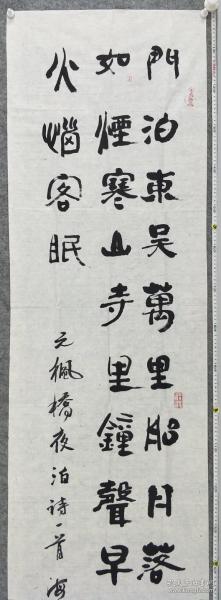 門泊東吳萬里船月落
如煙寒山寺里鐘聲早
火惱客眠
元楓橋夜泊詩一首海